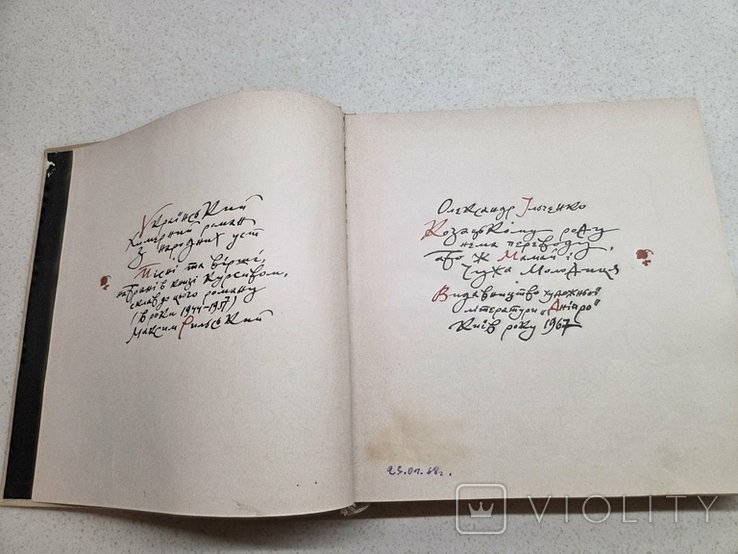 Український
химерний роман
з народних уст
Пісні та вірші,
набрані в книзі курсивом,
склав до цього роману
(в роки 1944-1957)
Максим Рильський
Олександр Ільченко
Козацькому роду
нема переводу,
або ж Мамай і
Чужа Молодиця
Видавництво художньої
літератури „Дніпро"
Київ року 1967
23.01.88г.
VIOLITY